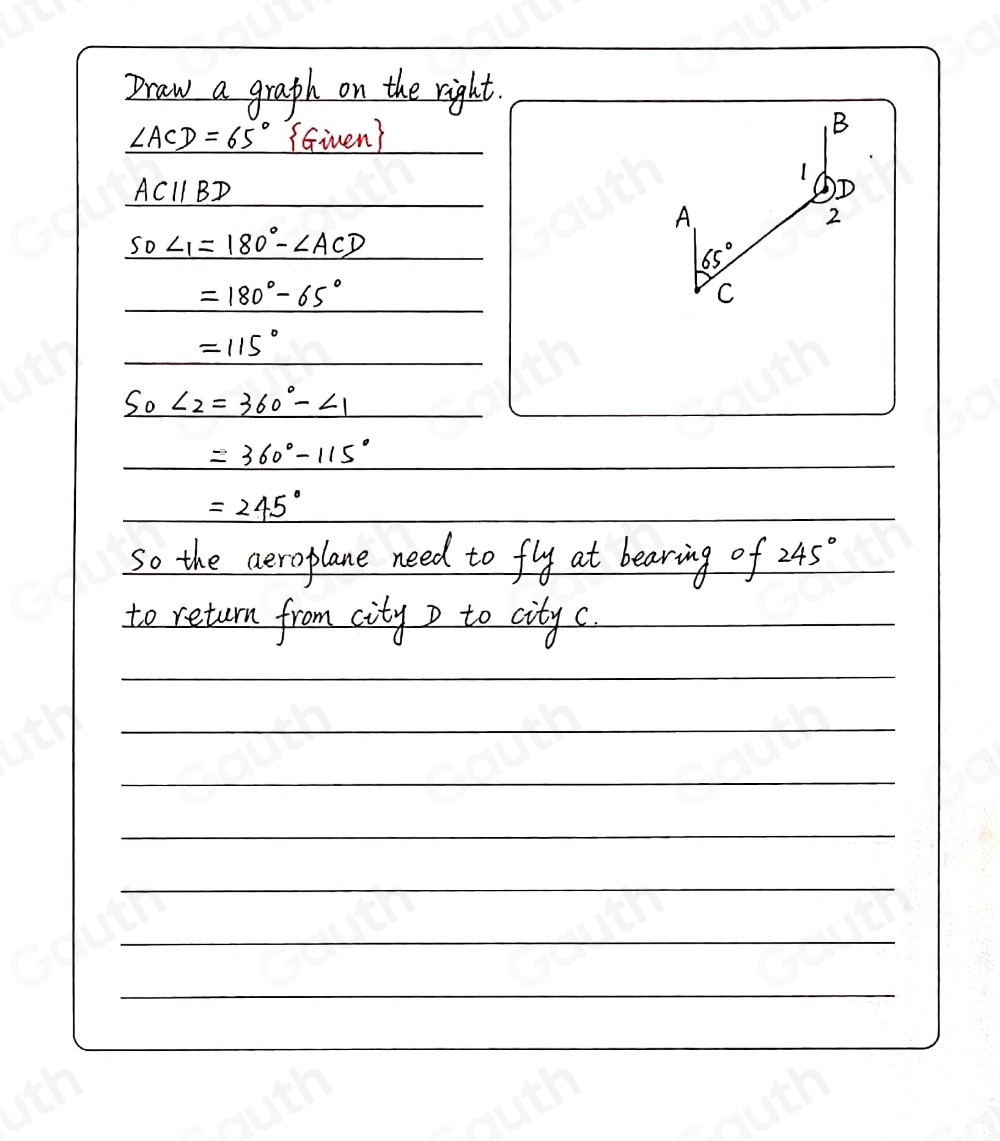 Draw a graph on the right.
∠ACD = 65° {Given}
AC || BD
so ∠1 = 180° - ∠ACD
= 180° - 65°
= 115°
So ∠2 = 360° - ∠1
= 360° - 115°
= 245°
So the aeroplane need to fly at bearing of 245°
to return from city D to city C.
B
1
D
2
A
65°
C
Gauth